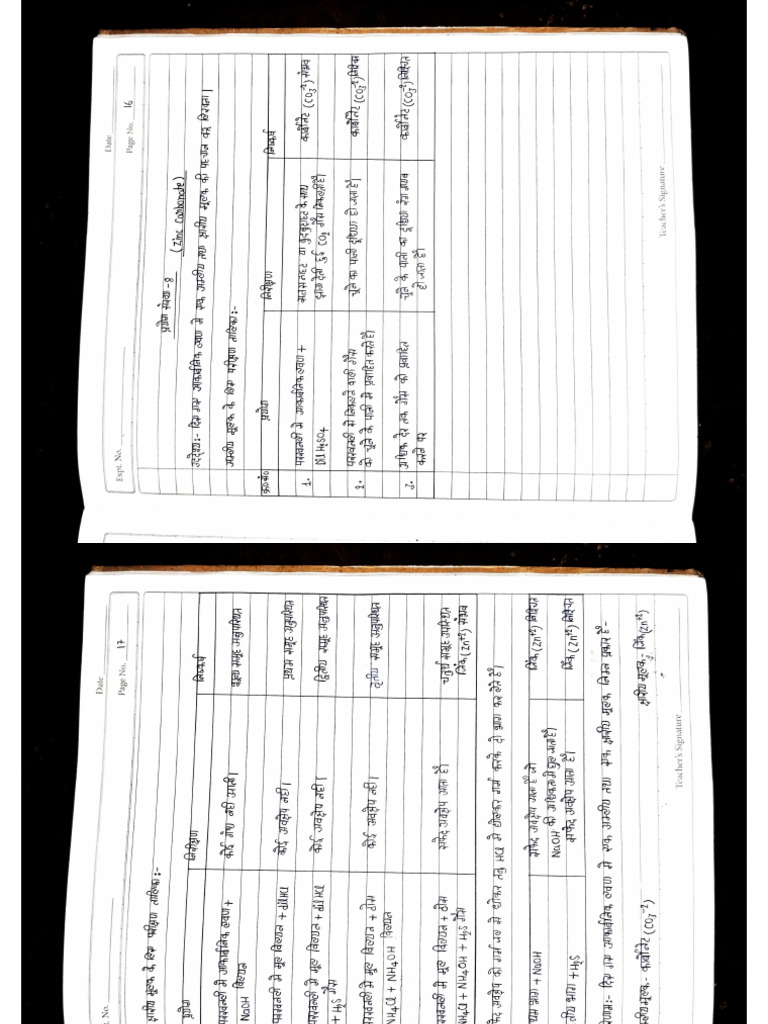 Expt. No.
Date
Page No. 16
प्रयोग संख्या - 8 (Zinc Carbonate)
उद्देश्य:- दिए गए अकार्बनिक लवण में एक अम्लीय तथा क्षारीय मूलक की पहचान कर लिखना।
अम्लीय मूलक के लिए परीक्षण तालिका:-
क्र०सं० प्रयोग निरीक्षण निष्कर्ष
1. परखनली में अकार्बनिक लवण + Dil H₂SO₄
सनसनाहट या बुदबुदाहट के साथ झाग देती हुई CO₂ गैस निकलती है।
कार्बोनेट (CO₃⁻²) संभव
2. परखनली से निकलने वाली गैस को चूने के पानी में प्रवाहित करते है।
चूने का पानी दूधिया हो जाता है।
कार्बोनेट (CO₃⁻²) निश्चित
3. अधिक देर तक गैस को प्रवाहित करने पर
चूने के पानी का दूधिया रंग गायब हो जाता है।
कार्बोनेट (CO₃⁻²) निश्चित
Teacher's Signature
No.
Date
Page No. 17
क्षारीय मूलक के लिए परीक्षण तालिका:-
प्रयोग निरीक्षण निष्कर्ष
परखनली में अकार्बनिक लवण + NaOH विलयन
कोई गंध नही आती।
शून्य समूह अनुपस्थित
परखनली में मूल विलयन + dil HCl
कोई अवक्षेप नहीं।
प्रथम समूह अनुपस्थित
परखनली में मूल विलयन + dil HCl + H₂S गैस
कोई अवक्षेप नहीं।
द्वितीय समूह अनुपस्थित
परखनली में मूल विलयन + ठोस NH₄Cl + NH₄OH विलयन
कोई अवक्षेप नहीं।
तृतीय समूह अनुपस्थित
परखनली में मूल विलयन + ठोस NH₄Cl + NH₄OH + H₂S गैस
सफेद अवक्षेप आता है।
चतुर्थ समूह उपस्थित जिंक (Zn⁺²) संभव
सफेद अवक्षेप को गर्म जल से धोकर तनु HCl में घोलकर गर्म करके दो भाग कर लेते है।
प्रथम भाग + NaOH
सफेद अवक्षेप आता है जो NaOH की अधिकता में घुल जाता है।
जिंक (Zn⁺²) निश्चित
द्वितीय भाग + H₂S
सफेद अवक्षेप आता है।
जिंक (Zn⁺²) निश्चित
परिणाम:- दिए गए अकार्बनिक लवण में एक अम्लीय तथा एक क्षारीय मूलक निम्न प्रकार है-
अम्लीय मूलक:- कार्बोनेट (CO₃⁻²) क्षारीय मूलक:- जिंक (Zn⁺²)
Teacher's Signature